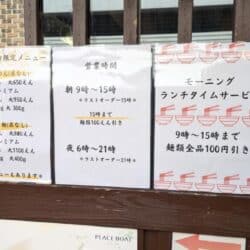 限定メニュー
大650えん
ミアム
大950えん
大 300g
大650えん
ミアム
大950えん
大400g
ニューもあります
営業時間
朝 9時〜15時
*ラストオーダー15時*
15時まで
麺類100えん引き
夜 6時〜21時
*ラストオーダー21時*
モーニング
ランチタイムサービス
9時〜15時まで
麺類全品100円引き
PLACE BOAT